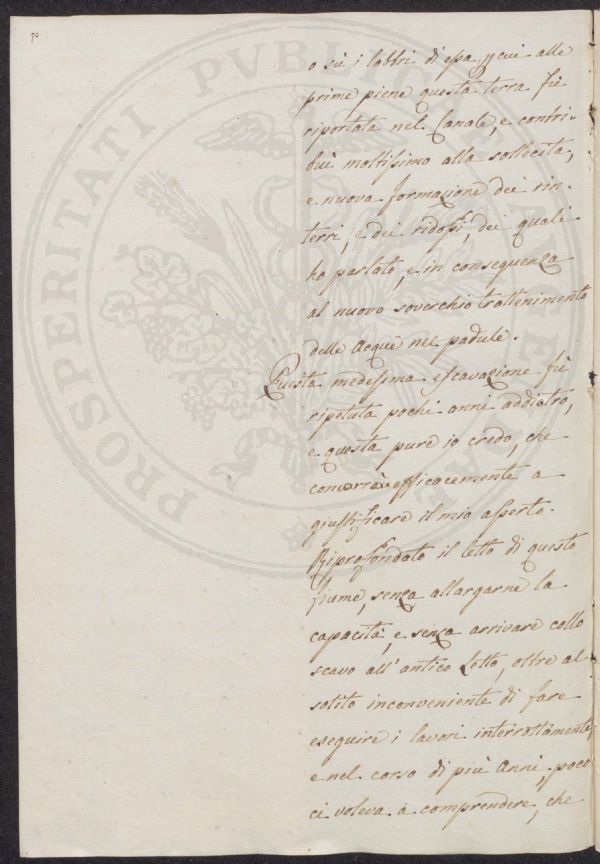 70
o sù i labbri di essa, p cui alle
prime piene questa terra fù
riportata nel Canale, e contri-
buì moltissimo alla sollecita,
e nuova formazione dei rin-
terri, e dei ridossi, dei quali
ho parlato, e in consequenza
al nuovo soverchio trattenimento
delle Acque nel padule.
Questa medesima escavazione fù
ripetuta pochi anni addietro,
e questa pure io credo, che
concorra efficacemente a
giustificare il mio asserto.
Riprofondato il letto di questo
fiume, senza allargarne la
capacità, e senza arrivare collo
scavo all'antico Letto, oltre al
solito inconveniente di fare
eseguire i lavori interrottamente,
e nel corso di più Anni, poco
ci voleva a comprendere, che
PROSPERITATI PVBLICAE AVGENDAE